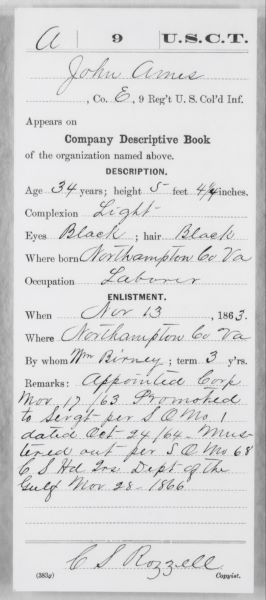 A 9 U.S.C.T.
John Ames
, Co. E, 9 Reg't U. S. Col'd Inf.
Appears on
Company Descriptive Book
of the organization named above.
DESCRIPTION.
Age 34 years; height 5 feet 4¼ inches.
Complexion Light
Eyes Black; hair Black
Where born Northampton Co Va
Occupation Laborer
ENLISTMENT.
When Nov 13, 1863.
Where Northampton Co Va
By whom Wm Birney; term 3 y'rs.
Remarks: Appointed Corp
Nov. 17 /63. Promoted
to Serg't per S.O. No. 1
dated Oct 24 /64. Mus-
tered out per S.O. No 68
C S Hd Qrs. Dept of the
Gulf Nov 28 - 1866
C S Rozzell
(383g) Copyist.